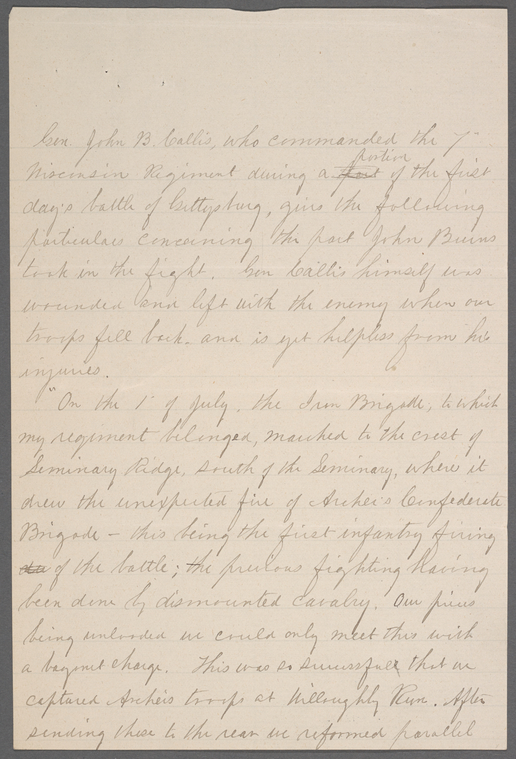 Gen. John B. Callis, who commanded the 7"
portion
Wisconsin Regiment during a part of the first
day's battle of Gettysburg, gives the following
particulars concerning the part John Burns
took in the fight. Gen Callis himself was
wounded and left with the enemy when our
troops fell back. and is yet helpless from his
injuries.
"On the 1" of July, the Iron Brigade, to which
my regiment belonged, marched to the crest of
Seminary Ridge, south of the Seminary, where it
drew the unexpected fire of Archer's Confederate
Brigade – this being the first infantry firing
of the battle; the previous fighting having
been done by dismounted cavalry. Our pieces
being unloaded we could only meet this with
a bayonet charge. This was so successful that we
captured Archer's troops at Willoughby Run. After
sending these to the rear we reformed parallel